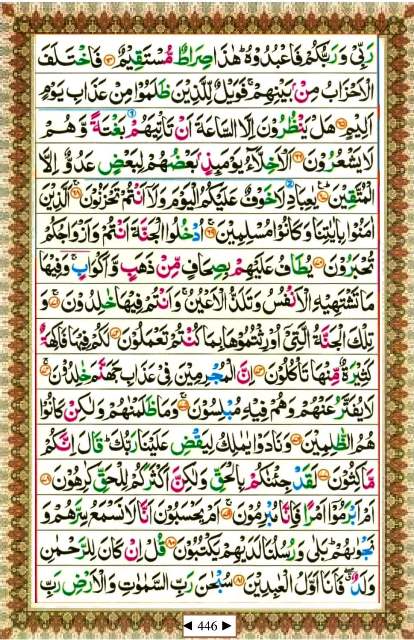 رَبِّیْ وَرَبُّكُمْ فَاعْبُدُوْهُ ؕ هٰذَا صِرَاطٌ مُّسْتَقِیْمٌ ۶۴ فَاخْتَلَفَ
الْاَحْزَابُ مِنْۢ بَیْنِهِمْ ۚ فَوَیْلٌ لِّلَّذِیْنَ ظَلَمُوْا مِنْ عَذَابِ یَوْمٍ
اَلِیْمٍ ۶۵ هَلْ یَنْظُرُوْنَ اِلَّا السَّاعَةَ اَنْ تَاْتِیَهُمْ بَغْتَةً وَّ هُمْ
لَا یَشْعُرُوْنَ ۶۶ اَلْاَخِلَّآءُ یَوْمَىِٕذٍۭ بَعْضُهُمْ لِبَعْضٍ عَدُوٌّ اِلَّا
الْمُتَّقِیْنَ ۶۷ یٰعِبَادِ لَا خَوْفٌ عَلَیْكُمُ الْیَوْمَ وَلَاۤ اَنْتُمْ تَحْزَنُوْنَ ۶۸ اَلَّذِیْنَ
اٰمَنُوْا بِاٰیٰتِنَا وَكَانُوْا مُسْلِمِیْنَ ۶۹ اُدْخُلُوا الْجَنَّةَ اَنْتُمْ وَاَزْوَاجُكُمْ
تُحْبَرُوْنَ ۷۰ یُطَافُ عَلَیْهِمْ بِصِحَافٍ مِّنْ ذَهَبٍ وَّاَكْوَابٍ ۚ وَفِیْهَا
مَا تَشْتَهِیْهِ الْاَنْفُسُ وَتَلَذُّ الْاَعْیُنُ ۚ وَاَنْتُمْ فِیْهَا خٰلِدُوْنَ ۷۱ وَ
تِلْكَ الْجَنَّةُ الَّتِیْۤ اُوْرِثْتُمُوْهَا بِمَا كُنْتُمْ تَعْمَلُوْنَ ۷۲ لَكُمْ فِیْهَا فَاكِهَةٌ
كَثِیْرَةٌ مِّنْهَا تَاْكُلُوْنَ ۷۳ اِنَّ الْمُجْرِمِیْنَ فِیْ عَذَابِ جَهَنَّمَ خٰلِدُوْنَ ۷۴
لَا یُفَتَّرُ عَنْهُمْ وَهُمْ فِیْهِ مُبْلِسُوْنَ ۷۵ وَمَا ظَلَمْنٰهُمْ وَلٰكِنْ كَانُوْا
هُمُ الظّٰلِمِیْنَ ۷۶ وَنَادَوْا یٰمٰلِكُ لِیَقْضِ عَلَیْنَا رَبُّكَ ؕ قَالَ اِنَّكُمْ
مّٰكِثُوْنَ ۷۷ لَقَدْ جِئْنٰكُمْ بِالْحَقِّ وَلٰكِنَّ اَكْثَرَكُمْ لِلْحَقِّ كٰرِهُوْنَ ۷۸
اَمْ اَبْرَمُوْۤا اَمْرًا فَاِنَّا مُبْرِمُوْنَ ۷۹ اَمْ یَحْسَبُوْنَ اَنَّا لَا نَسْمَعُ سِرَّهُمْ وَ
نَجْوٰىهُمْ ؕ بَلٰی وَرُسُلُنَا لَدَیْهِمْ یَكْتُبُوْنَ ۸۰ قُلْ اِنْ كَانَ لِلرَّحْمٰنِ
وَلَدٌ ۖ فَاَنَا اَوَّلُ الْعٰبِدِیْنَ ۸۱ سُبْحٰنَ رَبِّ السَّمٰوٰتِ وَالْاَرْضِ رَبِّ
446